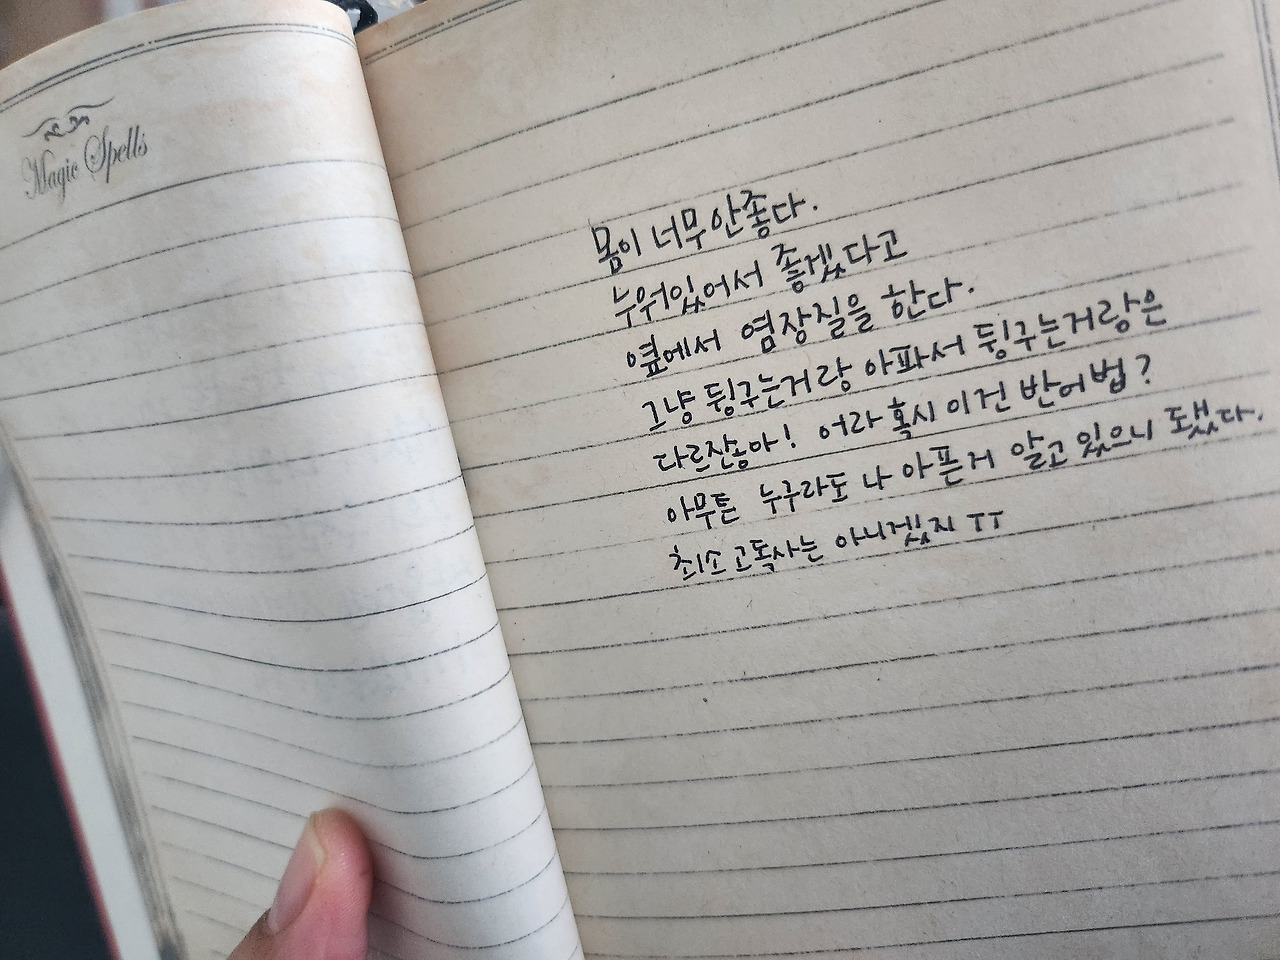 Magic Spells
몸이 너무 안좋다.
누워있어서 좋겠다고
옆에서 염장질을 한다.
그냥 뒹구는거랑 아파서 뒹구는거랑은
다르잖아! 어라 혹시 이건 반어법?
아무튼 누구라도 나 아픈거 알고 있으니 됐다.
최소 고독사는 아니겠지 TT